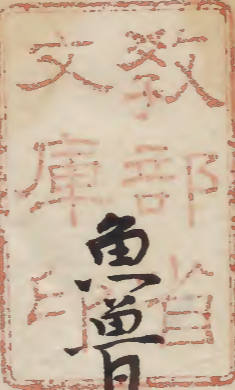 教部省
文庫印
魚